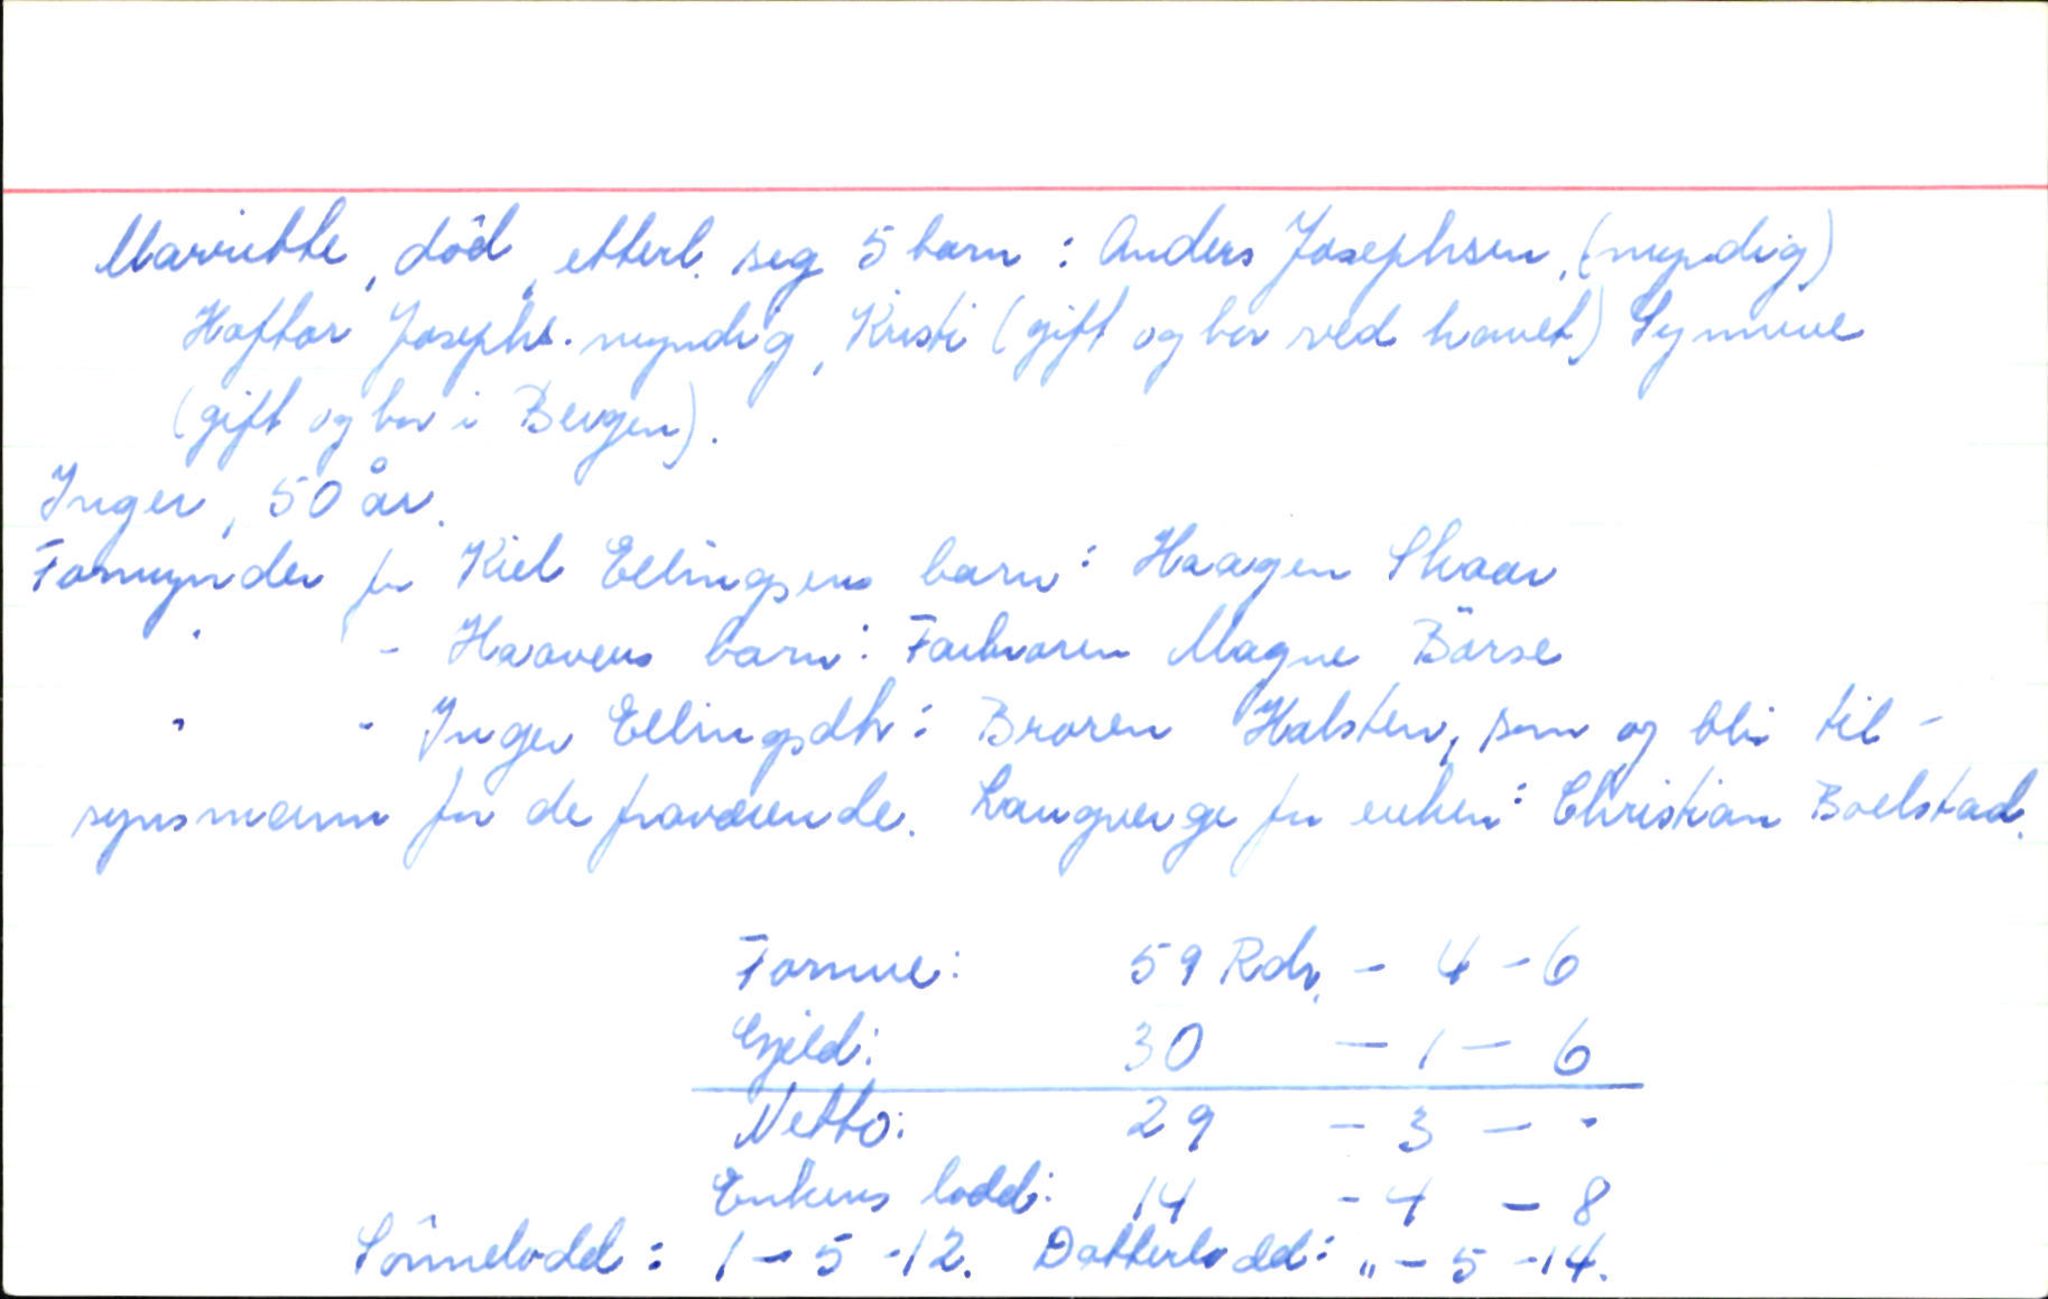 Marritte, död, etterl. seg 5 barn : Anders Josephsen, (myndig)
Haftor Josephs. myndig, Kristi (gift og bor ved havet) Synneve
(gift og bor i Bergen).
Inger, 50 år.
Formynder for Kiel Ellingsens barn : Haagen Skaar
" - Haavens barn : Farbroren Magne Börse
" - Inger Ellingsdtr : Broren Halsten, som og blir til-
synsmann for de fraværende. Laugverge for enken : Christian Boelstad.
Formue: 59 Rdr. - 4 - 6
Gjeld: 30 - 1 - 6
Netto: 29 - 3 - -
Enkens lodd: 14 - 4 - 8
Sönnelodd : 1 - 5 - 12. Datterlodd : " - 5 - 14.